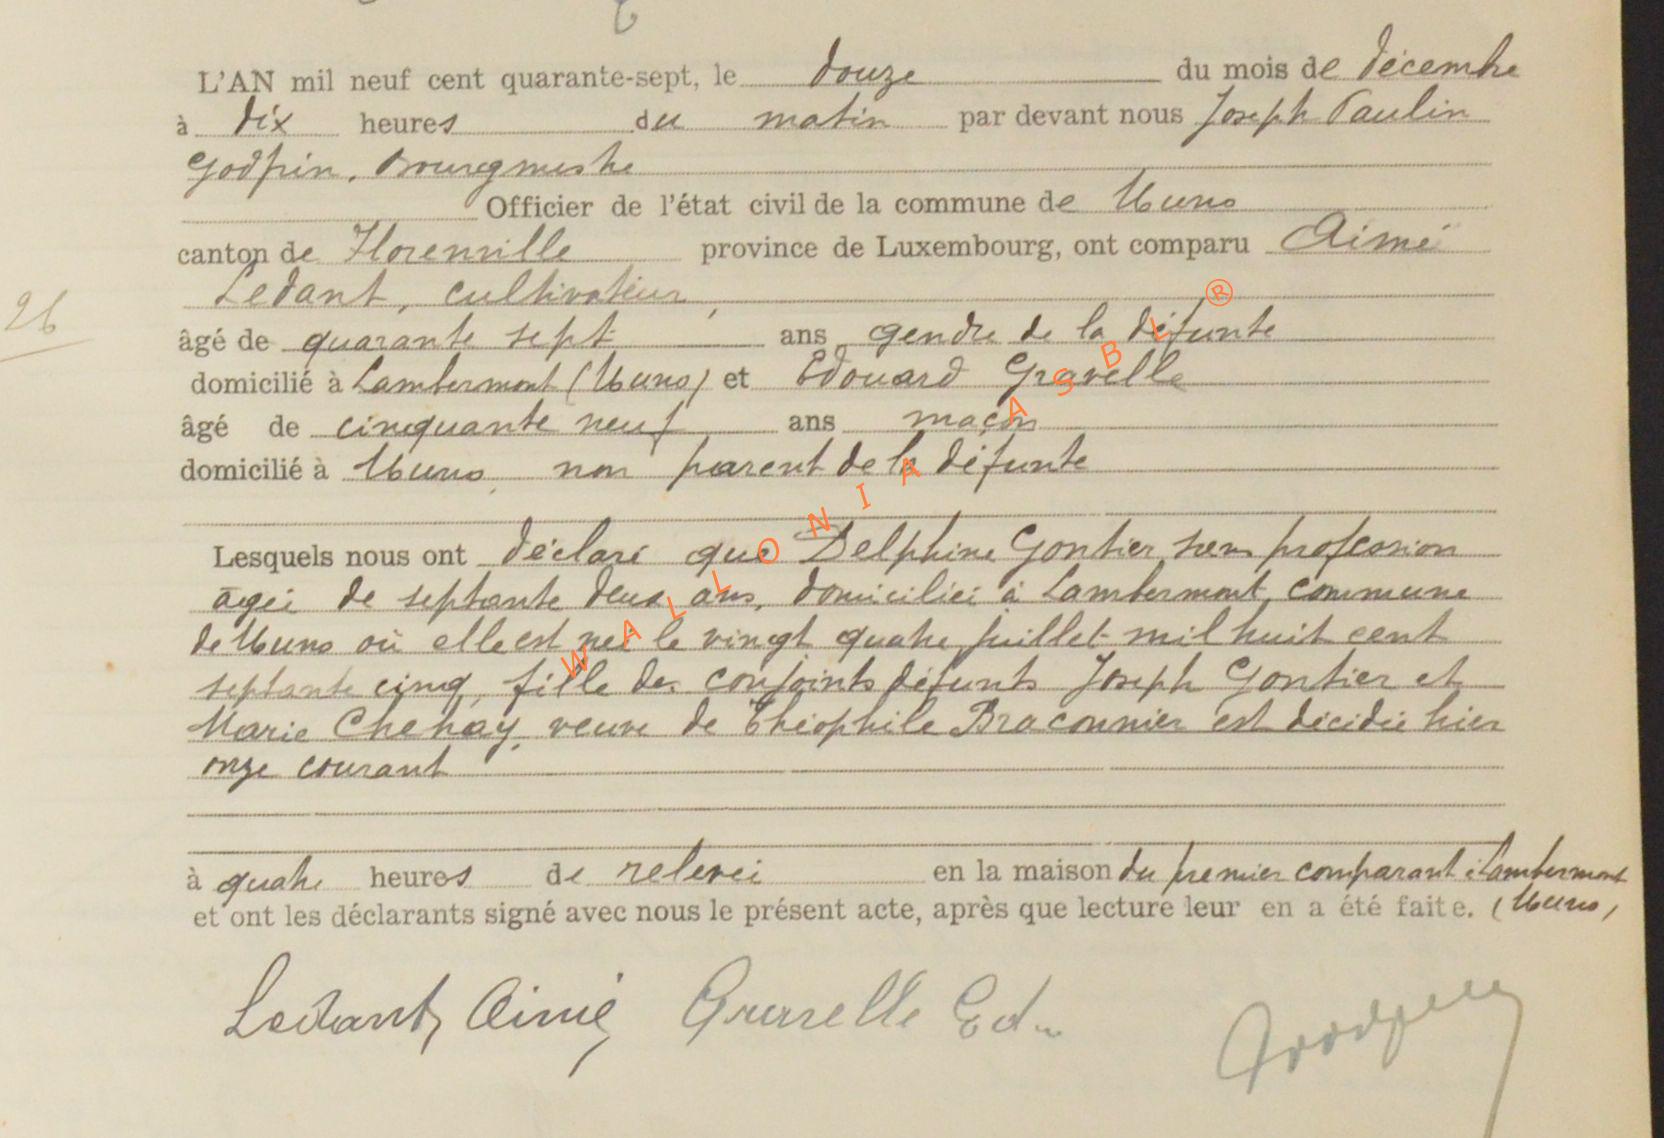 L'AN mil neuf cent quarante-sept, le douze du mois de décembre
à dix heures du matin par devant nous Joseph Paulin
Godfrin, Bourgmestre
Officier de l'état civil de la commune de Muno
canton de Florenville province de Luxembourg, ont comparu Aimé
Ledant, cultivateur,
26
âgé de quarante sept ans gendre de la défunte
domicilié à Lambermont (Muno) et Edouard Gravelle
âgé de cinquante neuf ans maçon
domicilié à Muno, non parent de la défunte
Lesquels nous ont déclaré que Delphine Gontier sans profession
âgée de septante deux ans, domiciliée à Lambermont, commune
de Muno où elle est née le vingt quatre juillet mil huit cent
septante cinq, fille des conjoints défunts Joseph Gontier et
Marie Chenay, veuve de Théophile Braconnier est décédée hier
onze courant
à quatre heures de relevée en la maison du premier comparant à Lambermont
et ont les déclarants signé avec nous le présent acte, après que lecture leur en a été faite. (Muno)
Ledant, Aimé Gravelle Ed.
WALLONIA ASBL ®